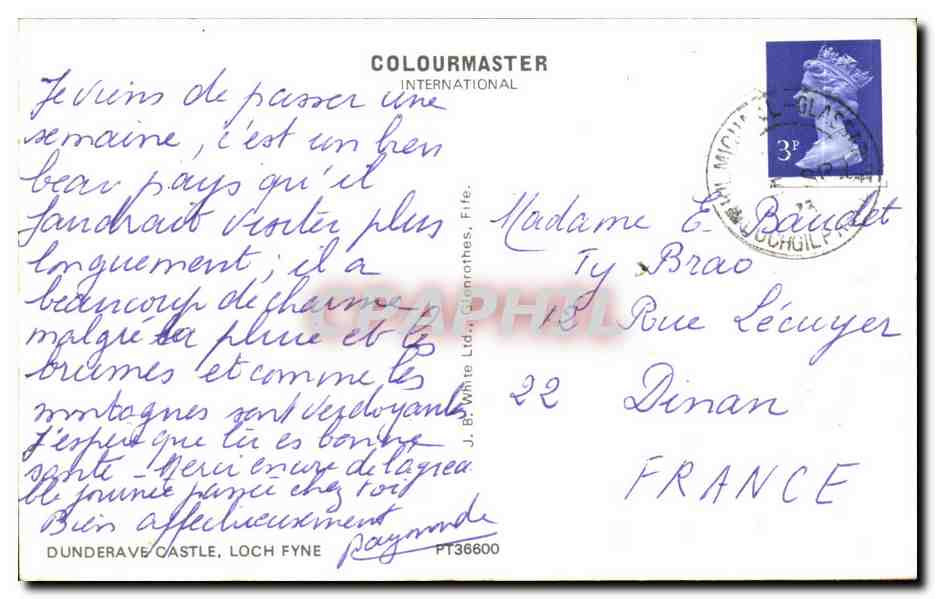 COLOURMASTER
INTERNATIONAL
Je viens de passer une
semaine, c'est un bien
beau pays qu'il
faudrait visiter plus
longuement, il a
beaucoup de charme
malgré la pluie et les
brumes et comme les
montagnes sont verdoyantes
J'espère que tu es bonne
santé - Merci encore de l'agréa
ble journée passée chez toi
Bien affectueusement
Raymonde
DUNDERAVE CASTLE, LOCH FYNE
PT36600
J. B. White Ltd., Glenrothes, Fife.
3P
Madame E. Baudet
Ty Brao
12 Rue Lécuyer
22 Dinan
FRANCE
CPAPHIL